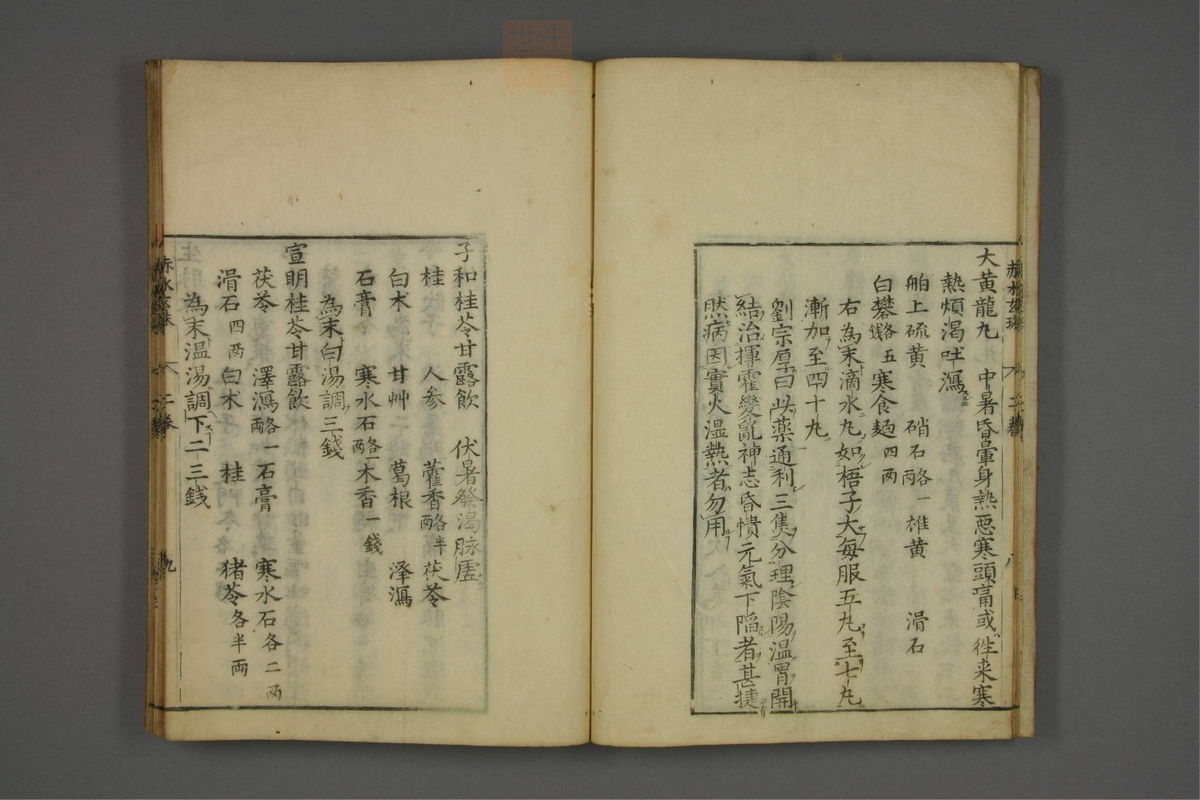 大黄龍丸　中暑昏暈身熱惡寒頭痛或徃来寒
熱煩渴吐瀉
舶上硫黄　硝石各一兩　雄黄　滑石
白礬各五錢　寒食麵四兩
右為末滴水丸如梧子大每服五丸至七丸
漸加至四十丸
劉宗厚曰此藥通利三焦分理陰陽温胃開
結治揮霍變亂神志昏憒元氣下陷者甚捷
然病因實火湿熱者勿用
子和桂苓甘露飲　伏暑發渴脉虛
桂　人参　藿香各半兩　茯苓
白木　甘艸　葛根　泽瀉
石膏　寒水石各一兩　木香一錢
為末白湯調三錢
宣明桂苓甘露飲
茯苓　澤瀉各一兩　石膏　寒水石各二兩
滑石四兩　白木　桂　猪苓各半両
為末温湯調下二三銭
二卷
九